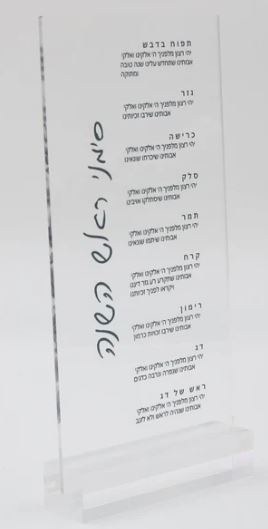 סימני ראש השנה
תפוח בדבש
יהי רצון מלפניך ה׳ אלקינו ואלקי
אבותינו שתחדש עלינו שנה טובה
ומתוקה
גזר
יהי רצון מלפניך ה׳ אלקינו ואלקי
אבותינו שירבו זכויותינו
כרישה
יהי רצון מלפניך ה׳ אלקינו ואלקי
אבותינו שיכרתו שונאינו
סלק
יהי רצון מלפניך ה׳ אלקינו ואלקי
אבותינו שיסתלקו אויבינו
תמר
יהי רצון מלפניך ה׳ אלקינו ואלקי
אבותינו שיתמו שונאינו
קרח
יהי רצון מלפניך ה׳ אלקינו ואלקי
אבותינו שתקרע רע גזר דיננו
ויקראו לפניך זכיותינו
רימון
יהי רצון מלפניך ה׳ אלקינו ואלקי
אבותינו שירבו זכויות כרמון
דג
יהי רצון מלפניך ה׳ אלקינו ואלקי
אבותינו שנפרה ונרבה כדגים
ראש של דג
יהי רצון מלפניך ה׳ אלקינו ואלקי
אבותינו שנהיה לראש ולא לזנב